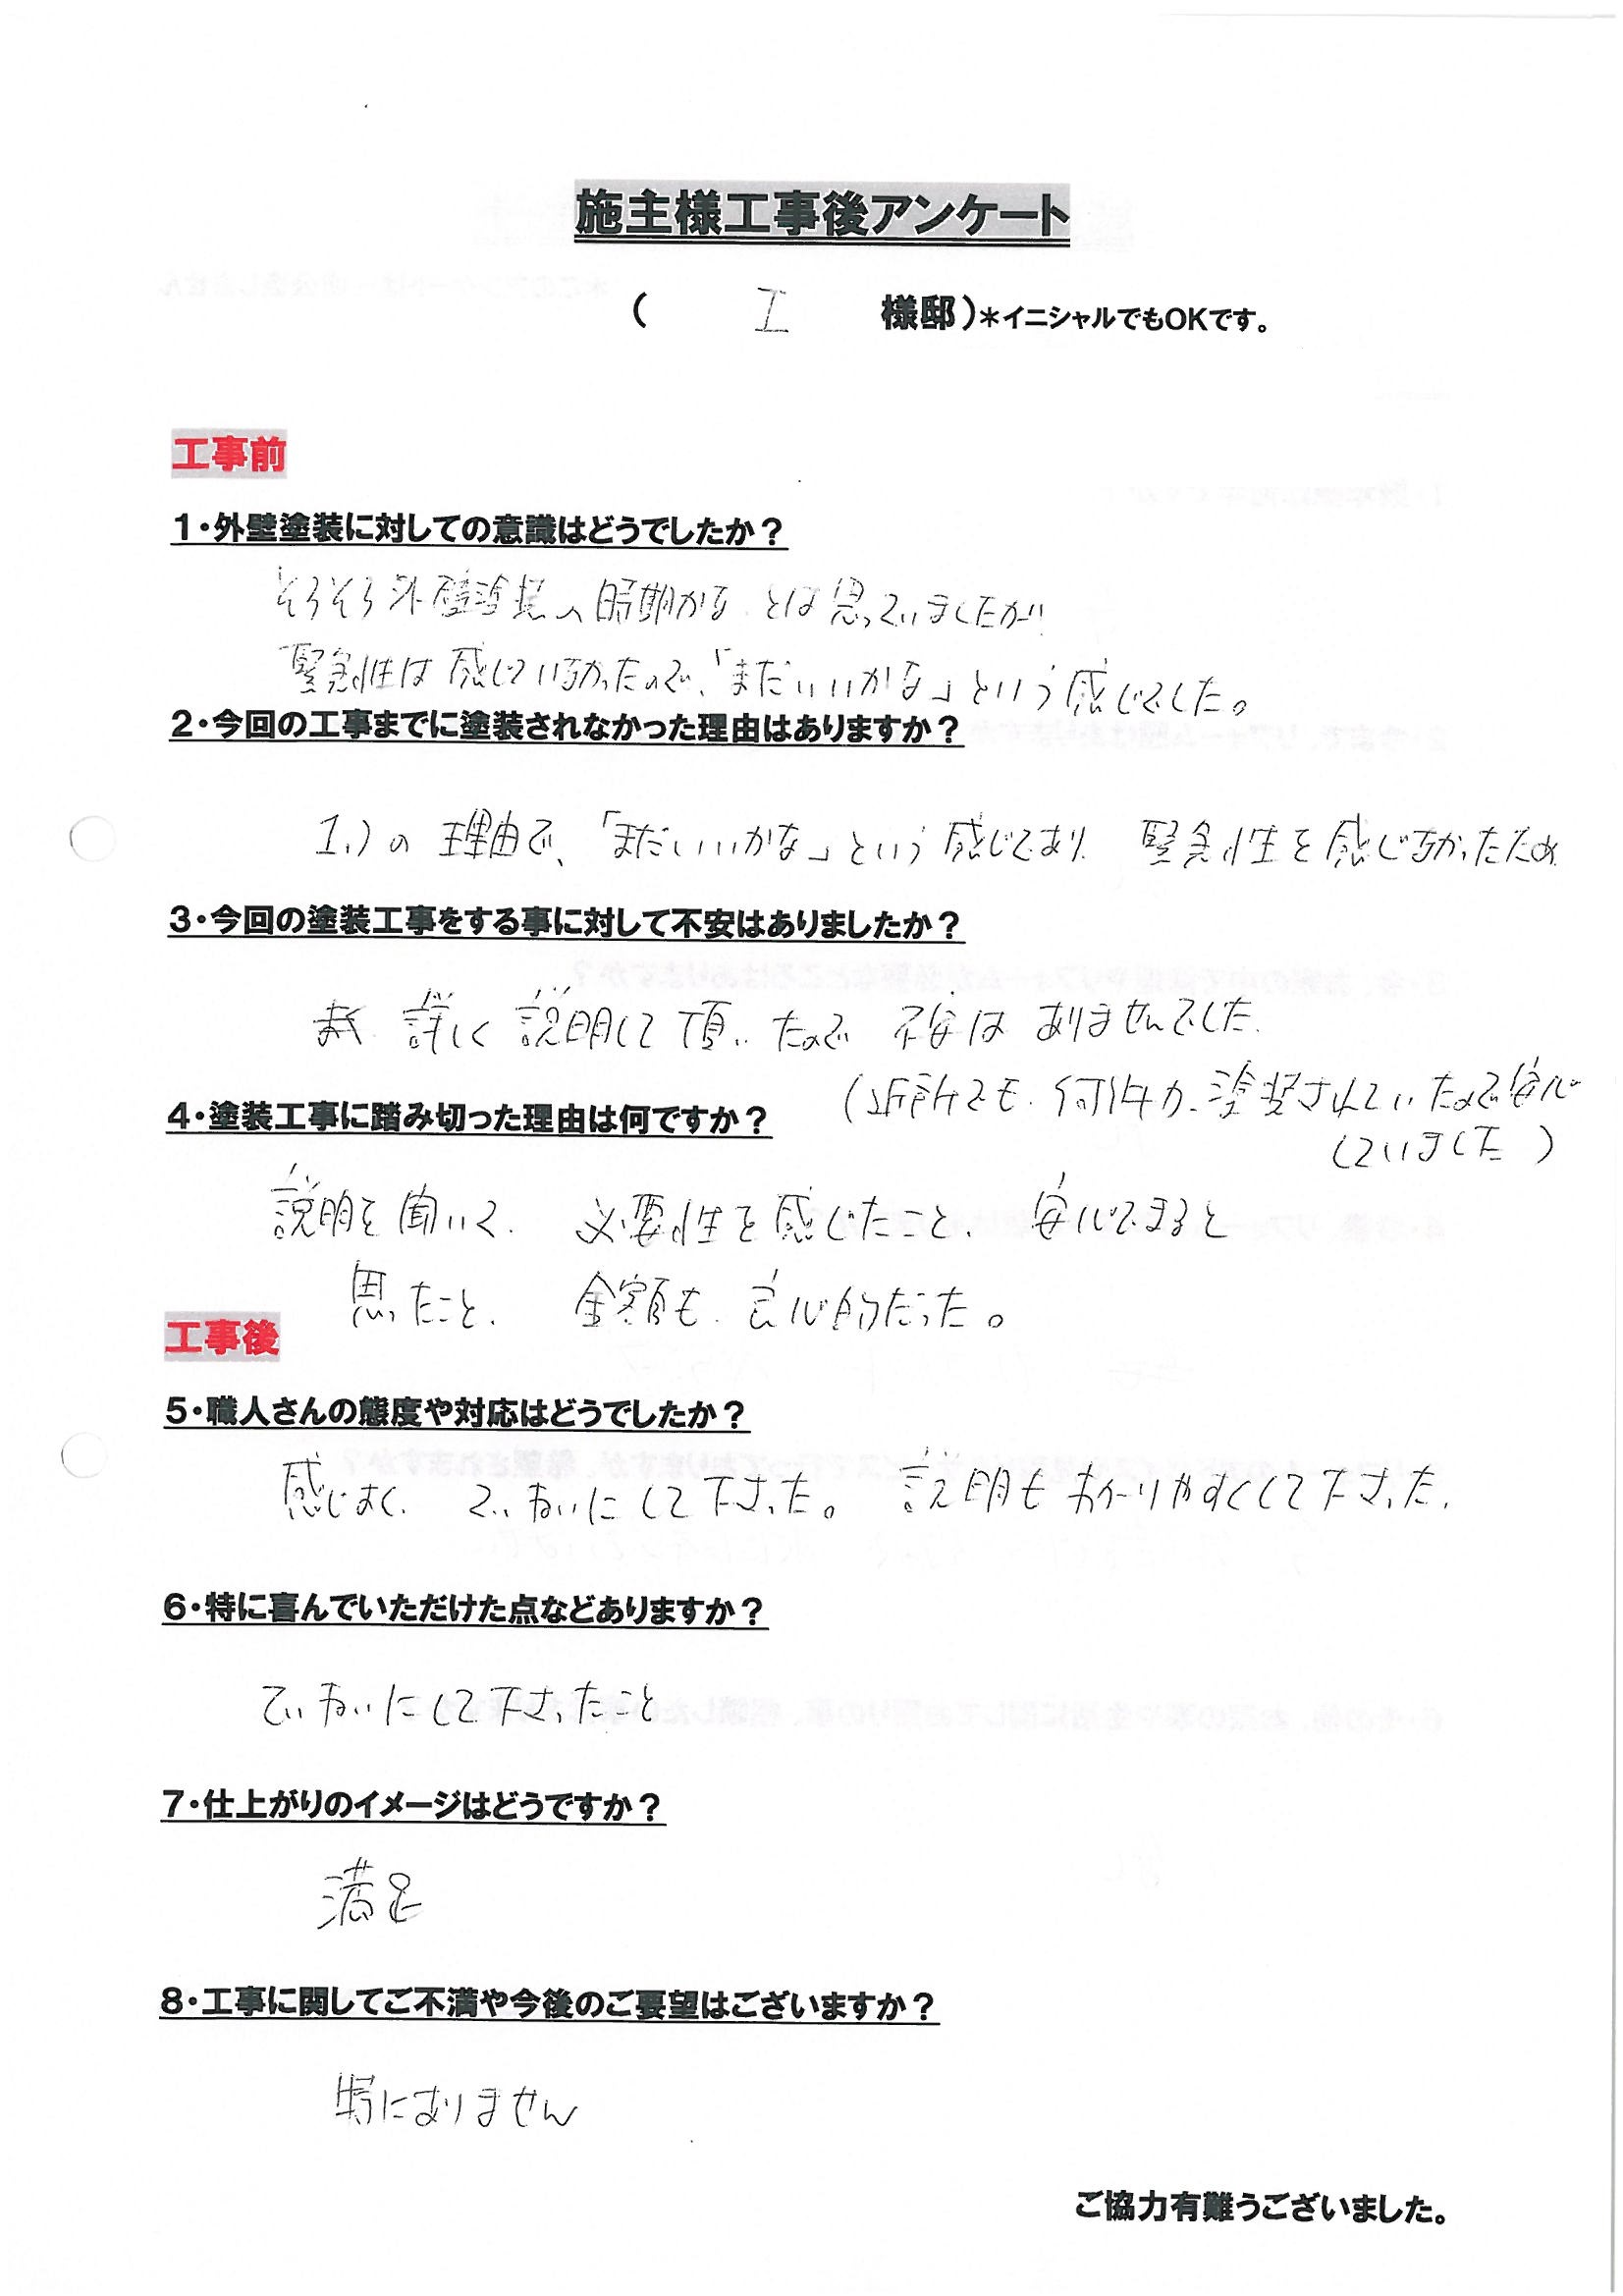 施主様工事後アンケート
( I 様邸)*イニシャルでもOKです。
工事前
1・外壁塗装に対しての意識はどうでしたか?
そろそろ外壁塗装の時期かな とは思っていましたが
緊急性は感じていなかったので、「まだいいかな」という感じでした。
2・今回の工事までに塗装されなかった理由はありますか?
1.)の 理由で、「まだいいかな」という感じであり 緊急性を感じなかったため
3・今回の塗装工事をする事に対して不安はありましたか?
詳しく 説明して頂いたので 不安は ありませんでした.
(近所でも、何件か、塗装されていたので安心
していました)
4・塗装工事に踏み切った理由は何ですか?
説明を聞いて、 必要性を感じたこと、 安心できると
思ったこと、 金額も 良心的だった。
工事後
5・職人さんの態度や対応はどうでしたか?
感じよく、 ていねいにして下さった。 説明もわかりやすくして下さった.
6・特に喜んでいただけた点などありますか?
ていねいにして下さったこと
7・仕上がりのイメージはどうですか?
満足
8・工事に関してご不満や今後のご要望はございますか?
特にありません
ご協力有難うございました。